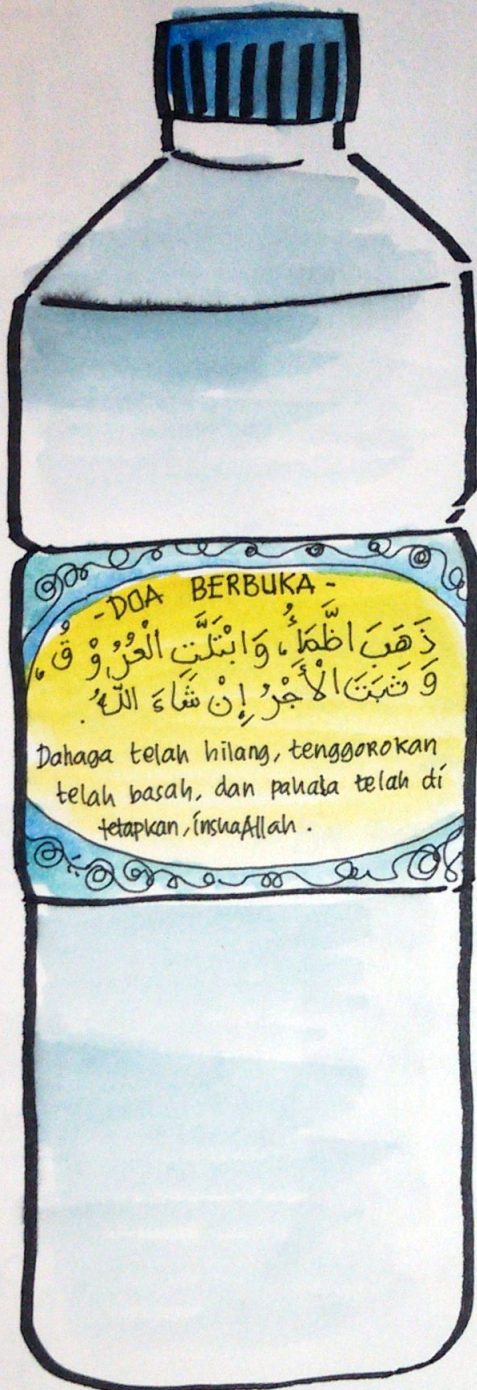 - DOA BERBUKA -
ذَهَبَ اظَّمَأُ، وَابْتَلَّتِ الْعُرُوْقُ،
وَثَبَتَ الْأَجْرُ إِنْ شَاءَ اللّٰهُ.
Dahaga telah hilang, tenggorokan
telah basah, dan pahala telah di
tetapkan, inshaAllah.